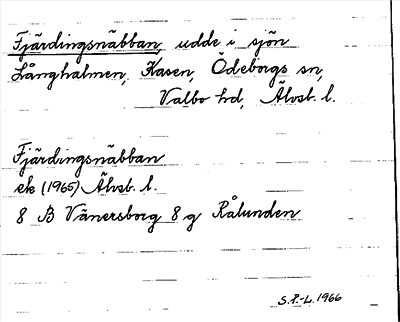 Fjärdingsnäbban, udde i sjön
Långhalmen, Kasen, Ödeborgs sn,
Valbo hd, Älvsb. l.
Fjärdingsnäbban
ek (1965) Älvsb. l.
8 B Vänersborg 8 g Rålunden
S.P.-L. 1966